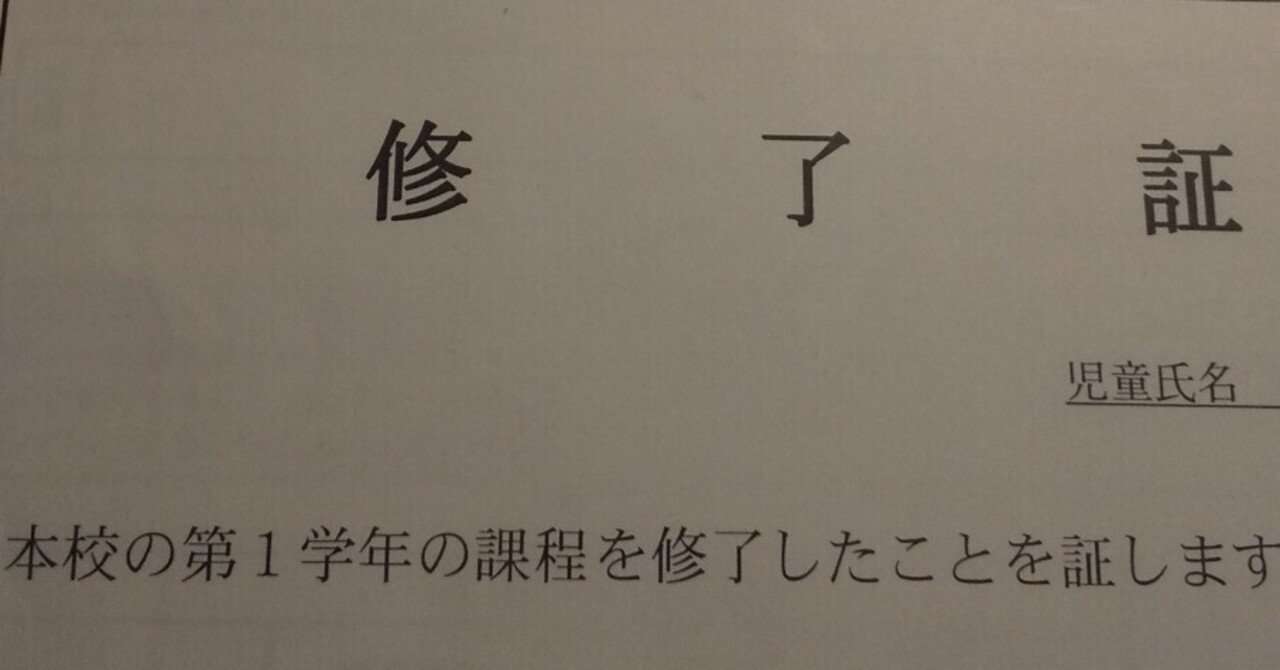 修了証
児童氏名
本校の第1学年の課程を修了したことを証します